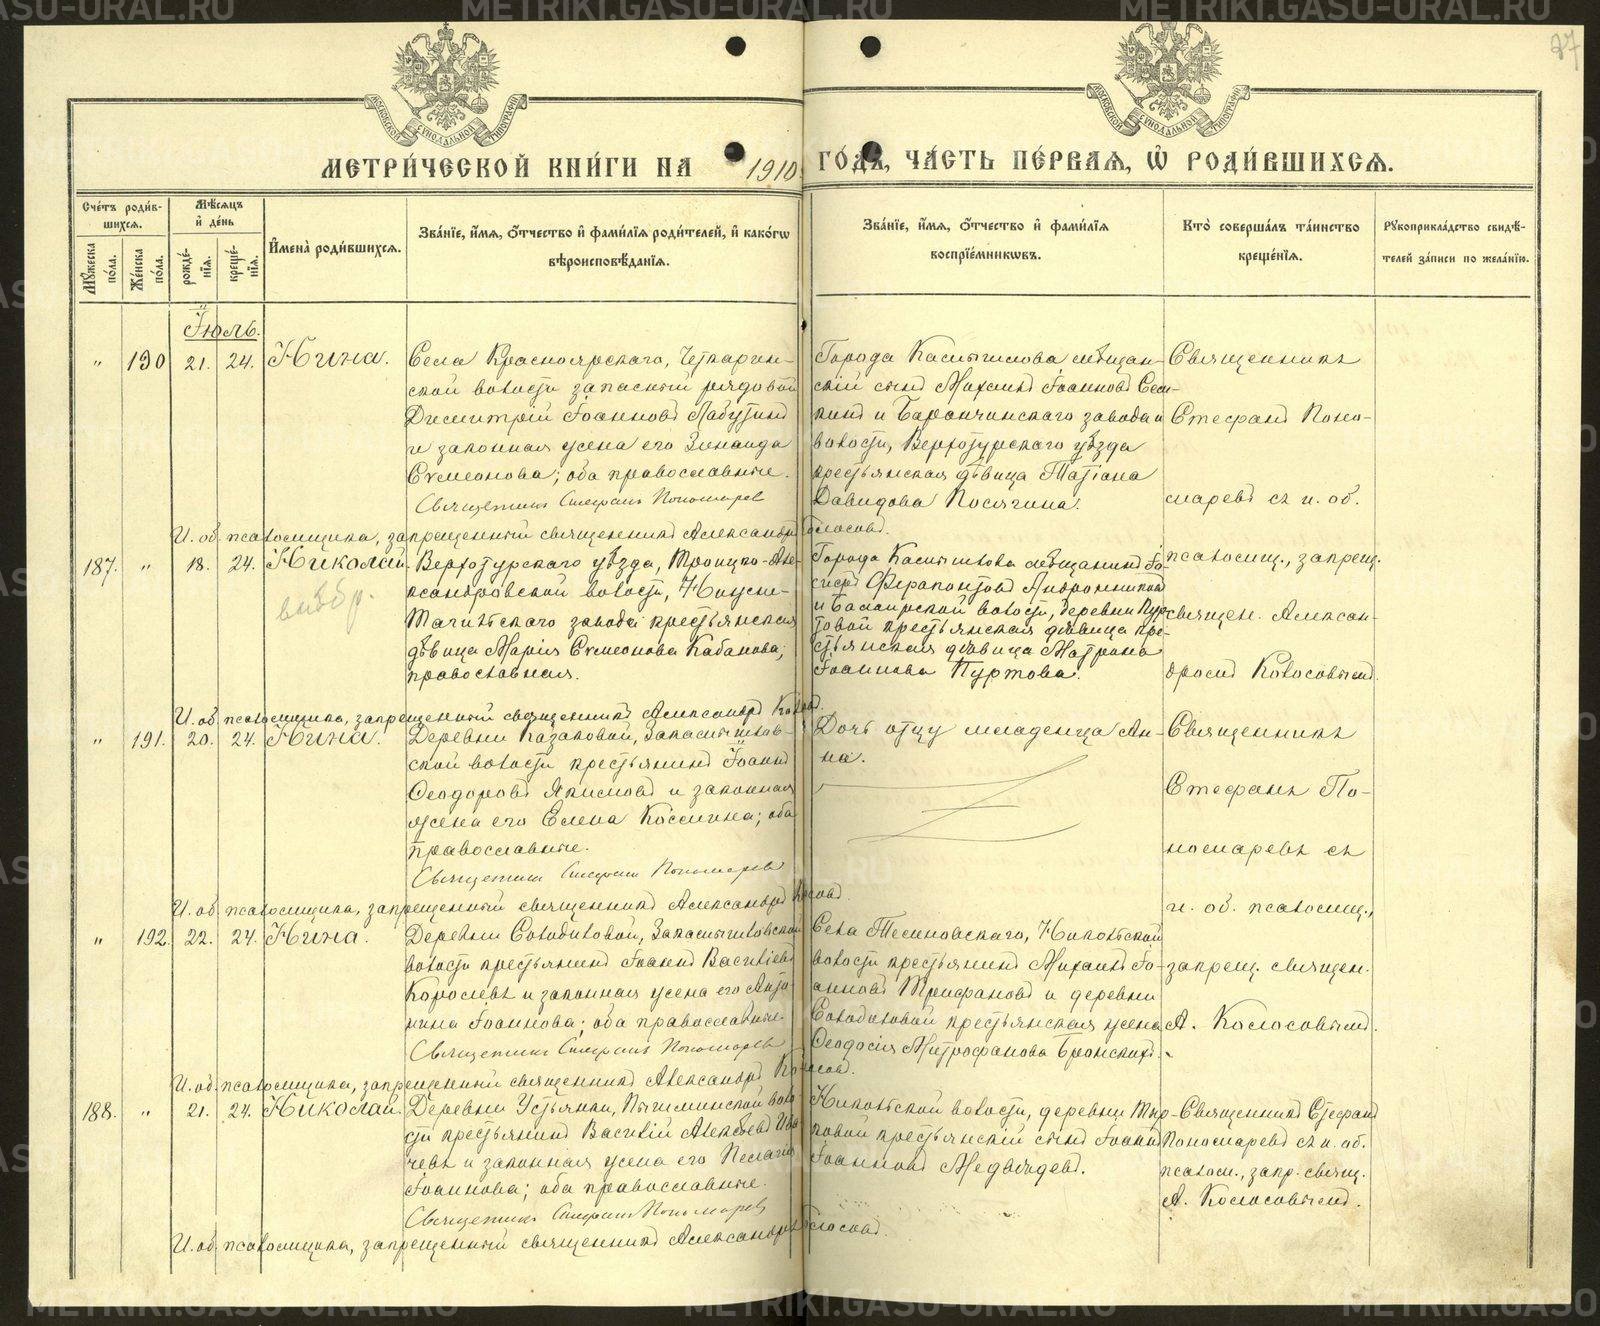 METRIKI.GASU-URAL.RU
27
МОСКОВСКОЙ СѴНОДАЛЬНОЙ ТИПОГРАФІИ
МОСКОВСКОЙ СѴНОДАЛЬНОЙ ТИПОГРАФІИ
МЕТРИ́ЧЕСКОЙ КНИ́ГИ НА 1910 ГО́ДЪ, ЧА́СТЬ ПЕ́РВАЯ, Ѡ҆ РОДИ́ВШИХСЯ.
Сче́тъ роди́в-
шихся.
Мꙋ́жеска по́ла.
Же́нска по́ла.
Мѣ́сяцъ и҆ де́нь
рожде́-
нїя.
креще́-
нїя.
И҆мена̀ роди́вшихся.
Зва́нїе, и҆́мя, ѻ҆́тчество и҆ фами́лїя роди́телей, и҆ како́гѡ
вѣроисповѣ́данїя.
Зва́нїе, и҆́мя, ѻ҆́тчество и҆ фами́лїя
воспрїе́мникѡвъ.
Кто̀ соверша́лъ та́инство
креще́нїя.
Рꙋкоприкла́дство свидѣ́-
телей за́писи по жела́нїю.
Іюль.
" 190 21. 24. Нина.
Села Красноярскаго, Четкарин-
ской волости запасный рядовой
Димитрій Іоанновъ Лабутинъ
и законная жена его Зинаида
Сѵмеонова; оба православные.
Священникъ Стефанъ Пономаревъ
Города Камышлова мѣщан-
скій сынъ Михаилъ Іоанновъ Сем-
кинъ и Баранчинскаго завода и
волости, Верхотурскаго уѣзда
крестьянская дѣвица Татіана
Давидова Посягина.
Священникъ
Стефанъ Поно-
маревъ съ и. об.
И. об. псаломщика, запрещенный священникъ Александръ Колосовъ.
187. " 18. 24. Николай.
выбр.
Верхотурскаго уѣзда, Троицко-Але-
ксандровской волости, Нижне-
Тагильскаго завода крестьянская
дѣвица Марія Сѵмеонова Кабанова;
православная.
Города Камышлова мѣщанинъ Іо-
сифъ Ферапонтовъ Андрониковъ
и Балаирской волости, деревни Пур-
товой крестьянская дѣвица кре-
стьянская дѣвица Матрона
Іоаннова Пуртова.
псаломщ., запрещ.
священ. Алексан-
дромъ Колосовымъ.
И. об. псаломщика, запрещенный священникъ Александръ Колосовъ.
" 191. 20. 24. Нина.
Деревни Казаковой, Закамышлов-
ской волости крестьянинъ Іоаннъ
Ѳеодоровъ Якимовъ и законная
жена его Елена Космина; оба
православные.
Священникъ Стефанъ Пономаревъ
Дочь отцу младенца Ан-
на.
Священникъ
Стефанъ По-
номаревъ съ
И. об. псаломщика, запрещенный священникъ Александръ Колосовъ.
и. об. псаломщ.,
" 192. 22. 24. Нина.
Деревни Солодиловой, Закамышловской
волости крестьянинъ Іоаннъ Василіевъ
Королевъ и законная жена его Анто-
нина Іоаннова; оба православные.
Священникъ Стефанъ Пономаревъ
Села Тесиновскаго, Никольской
волости крестьянинъ Михаилъ Іо-
анновъ Трифановъ и деревни
Солодиловой крестьянская жена
Ѳеодосія Митрофанова Бронскихъ.
запрещ. священ.
А. Колосовымъ.
И. об. псаломщика, запрещенный священникъ Александръ Колосовъ.
188. " 21. 24. Николай.
Деревни Устьянки, Пышминской воло-
сти крестьянинъ Василій Алексѣевъ
и законная жена его Пелагія
Іоаннова; оба православные.
Священникъ Стефанъ Пономаревъ
Никольской волости, деревни Тыр-
ковой крестьянскій сынъ Іоаннъ
Іоанновъ Медвѣдевъ.
Священникъ Стефанъ
Пономаревъ съ и. об.
псалом., запр. свящ.
А. Колосовымъ.
И. об. псаломщика, запрещенный священникъ Александръ Колосовъ.
METRIKI.GASU-URAL.RU